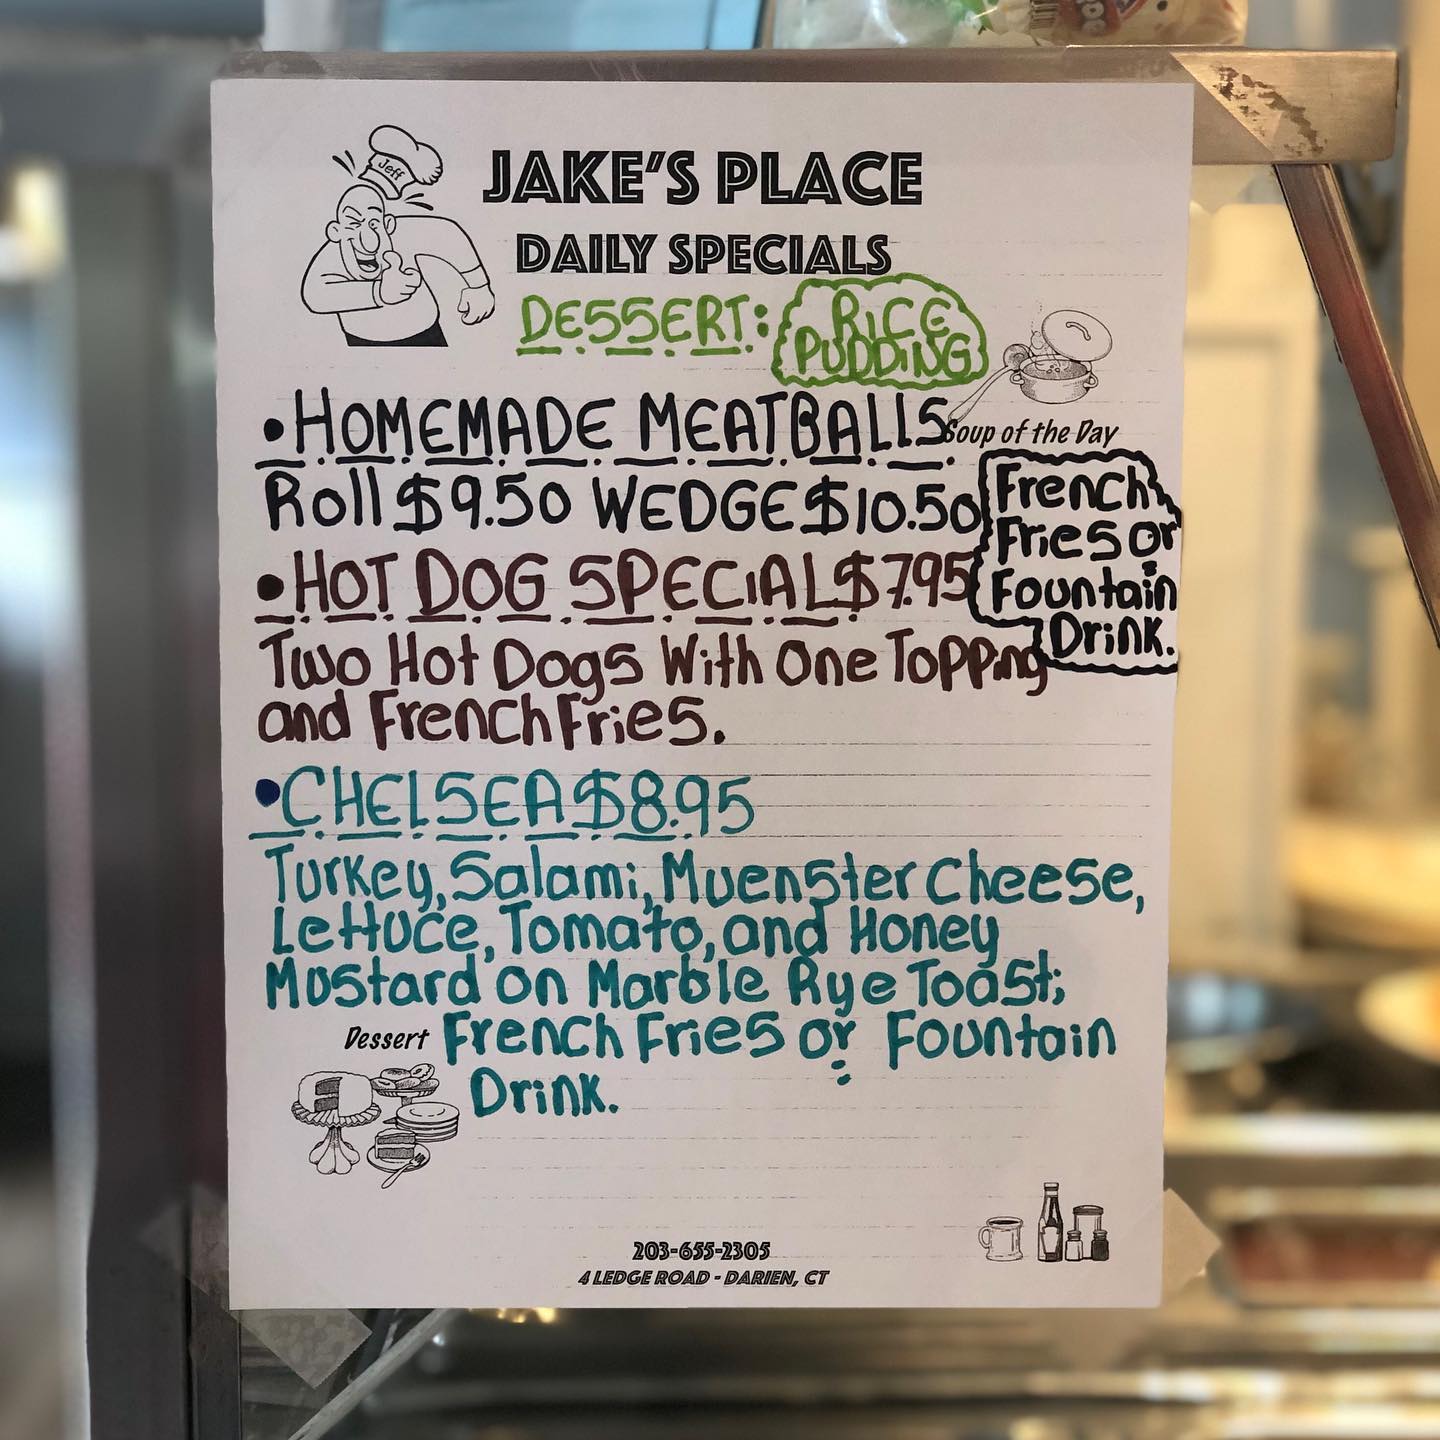 Jeff
JAKE'S PLACE
DAILY SPECIALS
DESSERT: RICE
PUDDING
• HOMEMADE MEATBALLS
Soup of the Day
Roll $9.50 WEDGE $10.50
French
Fries or
Fountain
Drink.
• HOT DOG SPECIAL $7.95
Two Hot Dogs With One Topping
and French Fries.
• CHELSEA $8.95
Turkey, Salami, Muenster Cheese,
Lettuce, Tomato, and Honey
Mustard on Marble Rye Toast;
Dessert
French Fries or Fountain
Drink.
203-655-2305
4 LEDGE ROAD - DARIEN, CT